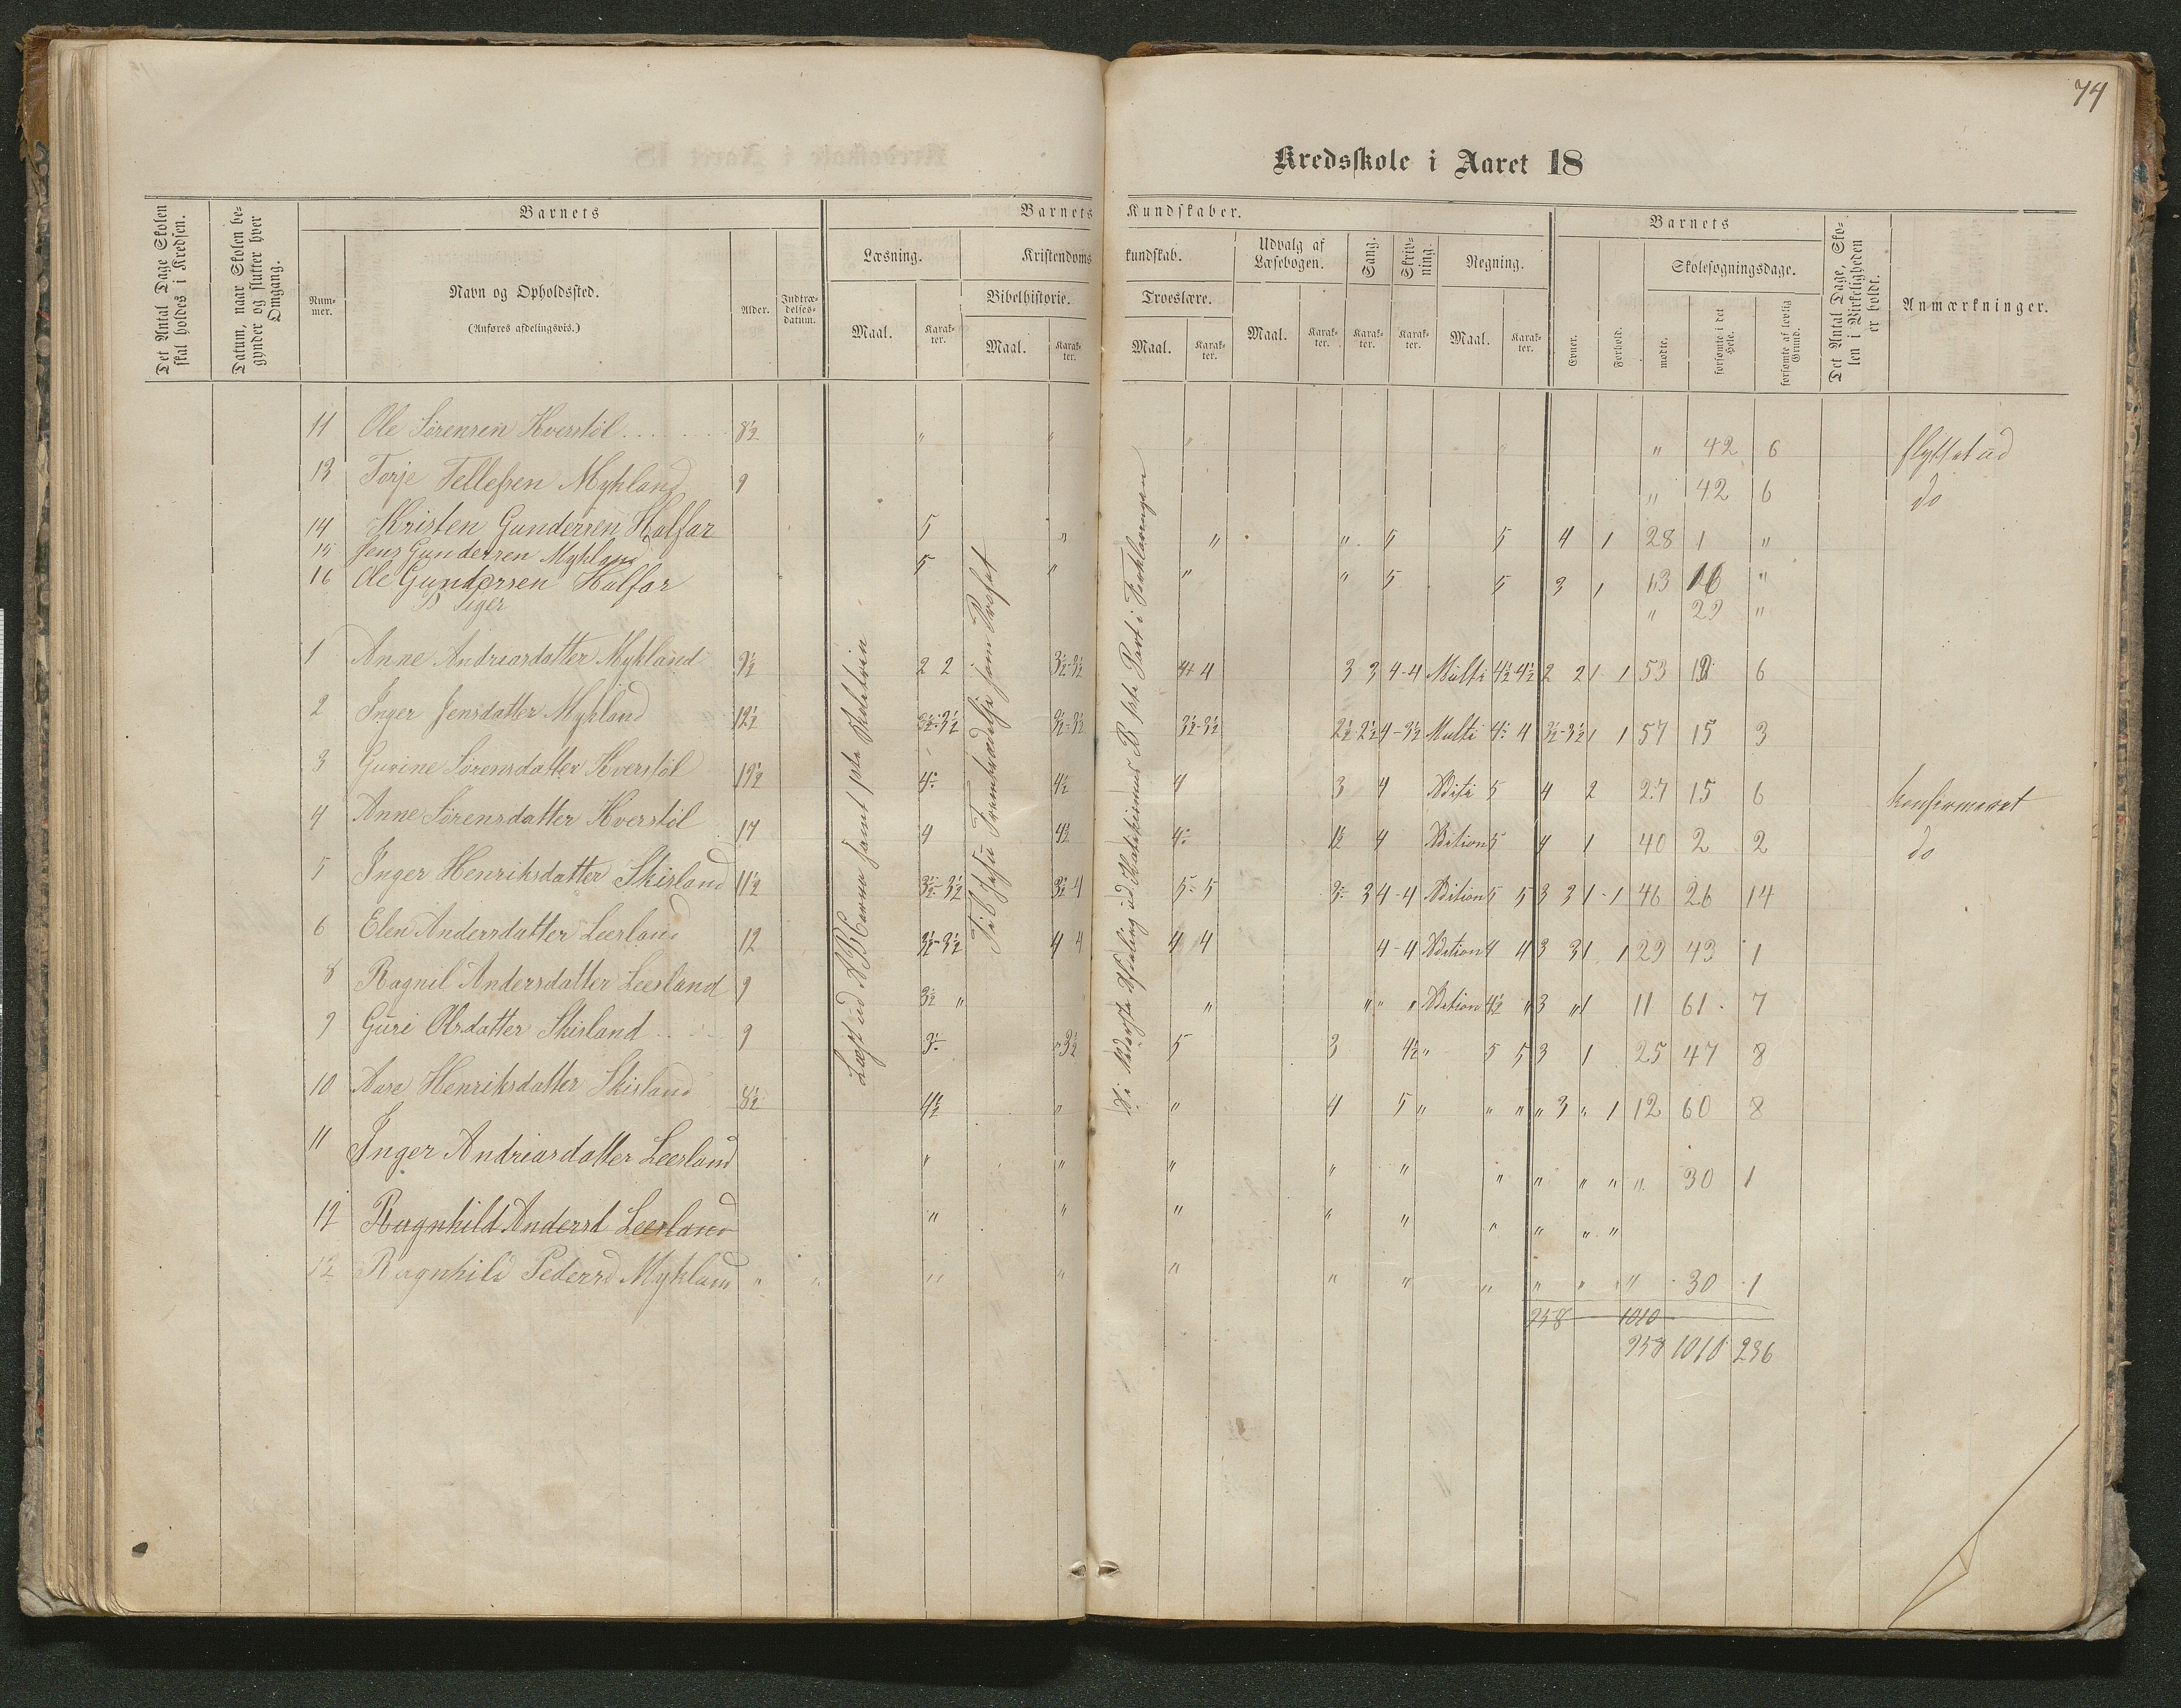 74
Kredsskole i Aaret 18
Det Antal Dage Skolen skal holdes i Kredsen.
Datum, naar Skolen begynder og slutter hver Omgang.
Barnets
Nummer.
Navn og Opholdssted.
(Anføres afdelingsvis.)
Alder.
Indtrædelsesdatum.
Barnets Kundskaber.
Læsning.
Maal.
Karakter.
Kristendomskundskab.
Bibelhistorie.
Maal.
Karakter.
Troeslære.
Maal.
Karakter.
Udvalg af Læsebogen.
Maal.
Karakter.
Sang.
Karakter.
Skrivning.
Karakter.
Regning.
Maal.
Karakter.
Barnets
Evner.
Forhold.
Skolesøgningsdage.
mødte.
forsømte i det Hele.
forsømte af lovlig Grund.
Det Antal Dage, Skolen i Virkeligheden er holdt.
Anmærkninger.
11 Ole Sørensen Hverstöl 8½ " " " " " 42 6 flyttet ud
13 Torje Tellefsen Mykland 9 " 42 6 do
14 Kristen Gundersen Halfar 5 " " " 5 5 4 1 28 1 "
15 Jens Gundersen Mykland 5 " " " 5 5 3 1 13 16 "
16 Ole Gundersen Halfar " 29 "
Piger
1 Anne Andreasdatter Mykland 9½ 2 2 3½-3½ 4 4 3 3 4-4 Multi 4½ 4½ 2 2 1 1 53 19 6
2 Inger Jensdatter Mykland 12½ 3½-3½ 3½-3½ 3½-3½ 2½ 2½ 4-3½ Multi 4 4 3½-3½ 1 1 57 15 3
3 Gurine Sørensdatter Hverstöl 4 4½ 4 3 4 Aditi 5 4 2 27 15 6 konfirmeret
4 Anne Sørensdatter Hverstöl 14 4 4½ 4 1½ 4 Adition 5 4 1 40 2 2 do
5 Inger Henriksdatter Skisland 11½ 3½-3½ 3½-4 5-5 3 3 4-4 Adition 5 5 3 3 1-1 46 26 14
6 Elen Andersdatter Leerland 12 3½-3½ 4 4 4 4 4-4 Adition 4 4 3 3 1 1 29 43 1
8 Ragnil Andersdatter Leesland 9 3½ " " " " " Adition 4½ " 3 " 1 11 61 7
9 Guri Olsdatter Skisland 9 3½ 5 3 4½ " 5 5 3 1 25 47 8
10 Aase Henriksdatter Skisland 8½ 4½ " " 4 5 " " " " 3 " 1 12 60 8
11 Inger Andreasdatter Leesland " " " " " " " " " " 30 1
12 Ragnhild Andersd Leesland " " " " " " " " "
12 Ragnhild Pedersd Mykland " " " " " " " " " " " 30 1
958 1010
958 1010 236
Læst ud ABCerne samt 1ste Skoletrin
Til Jesu Fremtrædelse som Profet